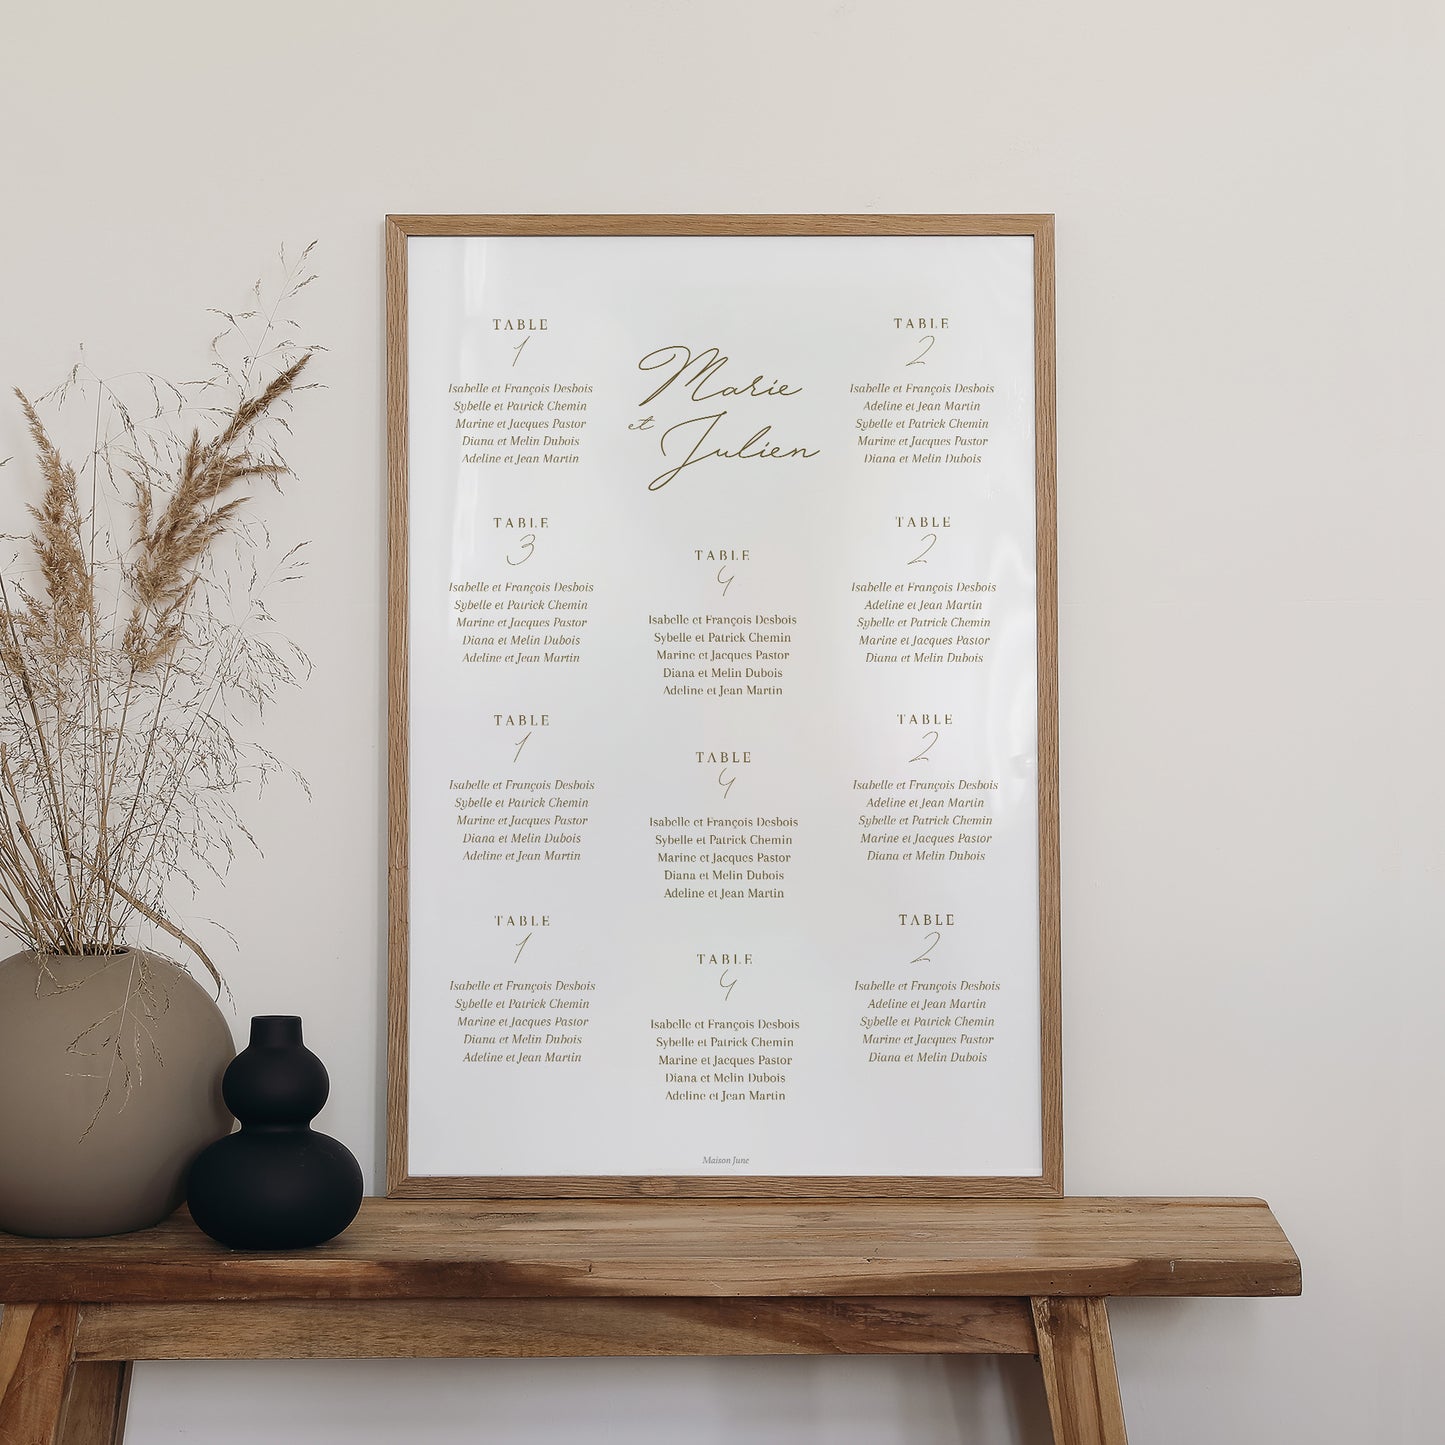 TABLE
1
Isabelle et François Desbois
Sybelle et Patrick Chemin
Marine et Jacques Pastor
Diana et Melin Dubois
Adeline et Jean Martin
TABLE
3
Isabelle et François Desbois
Sybelle et Patrick Chemin
Marine et Jacques Pastor
Diana et Melin Dubois
Adeline et Jean Martin
TABLE
1
Isabelle et François Desbois
Sybelle et Patrick Chemin
Marine et Jacques Pastor
Diana et Melin Dubois
Adeline et Jean Martin
TABLE
1
Isabelle et François Desbois
Sybelle et Patrick Chemin
Marine et Jacques Pastor
Diana et Melin Dubois
Adeline et Jean Martin
Marie
et Julien
TABLE
4
Isabelle et François Desbois
Sybelle et Patrick Chemin
Marine et Jacques Pastor
Diana et Melin Dubois
Adeline et Jean Martin
TABLE
4
Isabelle et François Desbois
Sybelle et Patrick Chemin
Marine et Jacques Pastor
Diana et Melin Dubois
Adeline et Jean Martin
TABLE
4
Isabelle et François Desbois
Sybelle et Patrick Chemin
Marine et Jacques Pastor
Diana et Melin Dubois
Adeline et Jean Martin
TABLE
2
Isabelle et François Desbois
Adeline et Jean Martin
Sybelle et Patrick Chemin
Marine et Jacques Pastor
Diana et Melin Dubois
TABLE
2
Isabelle et François Desbois
Adeline et Jean Martin
Sybelle et Patrick Chemin
Marine et Jacques Pastor
Diana et Melin Dubois
TABLE
2
Isabelle et François Desbois
Adeline et Jean Martin
Sybelle et Patrick Chemin
Marine et Jacques Pastor
Diana et Melin Dubois
TABLE
2
Isabelle et François Desbois
Adeline et Jean Martin
Sybelle et Patrick Chemin
Marine et Jacques Pastor
Diana et Melin Dubois
Maison June